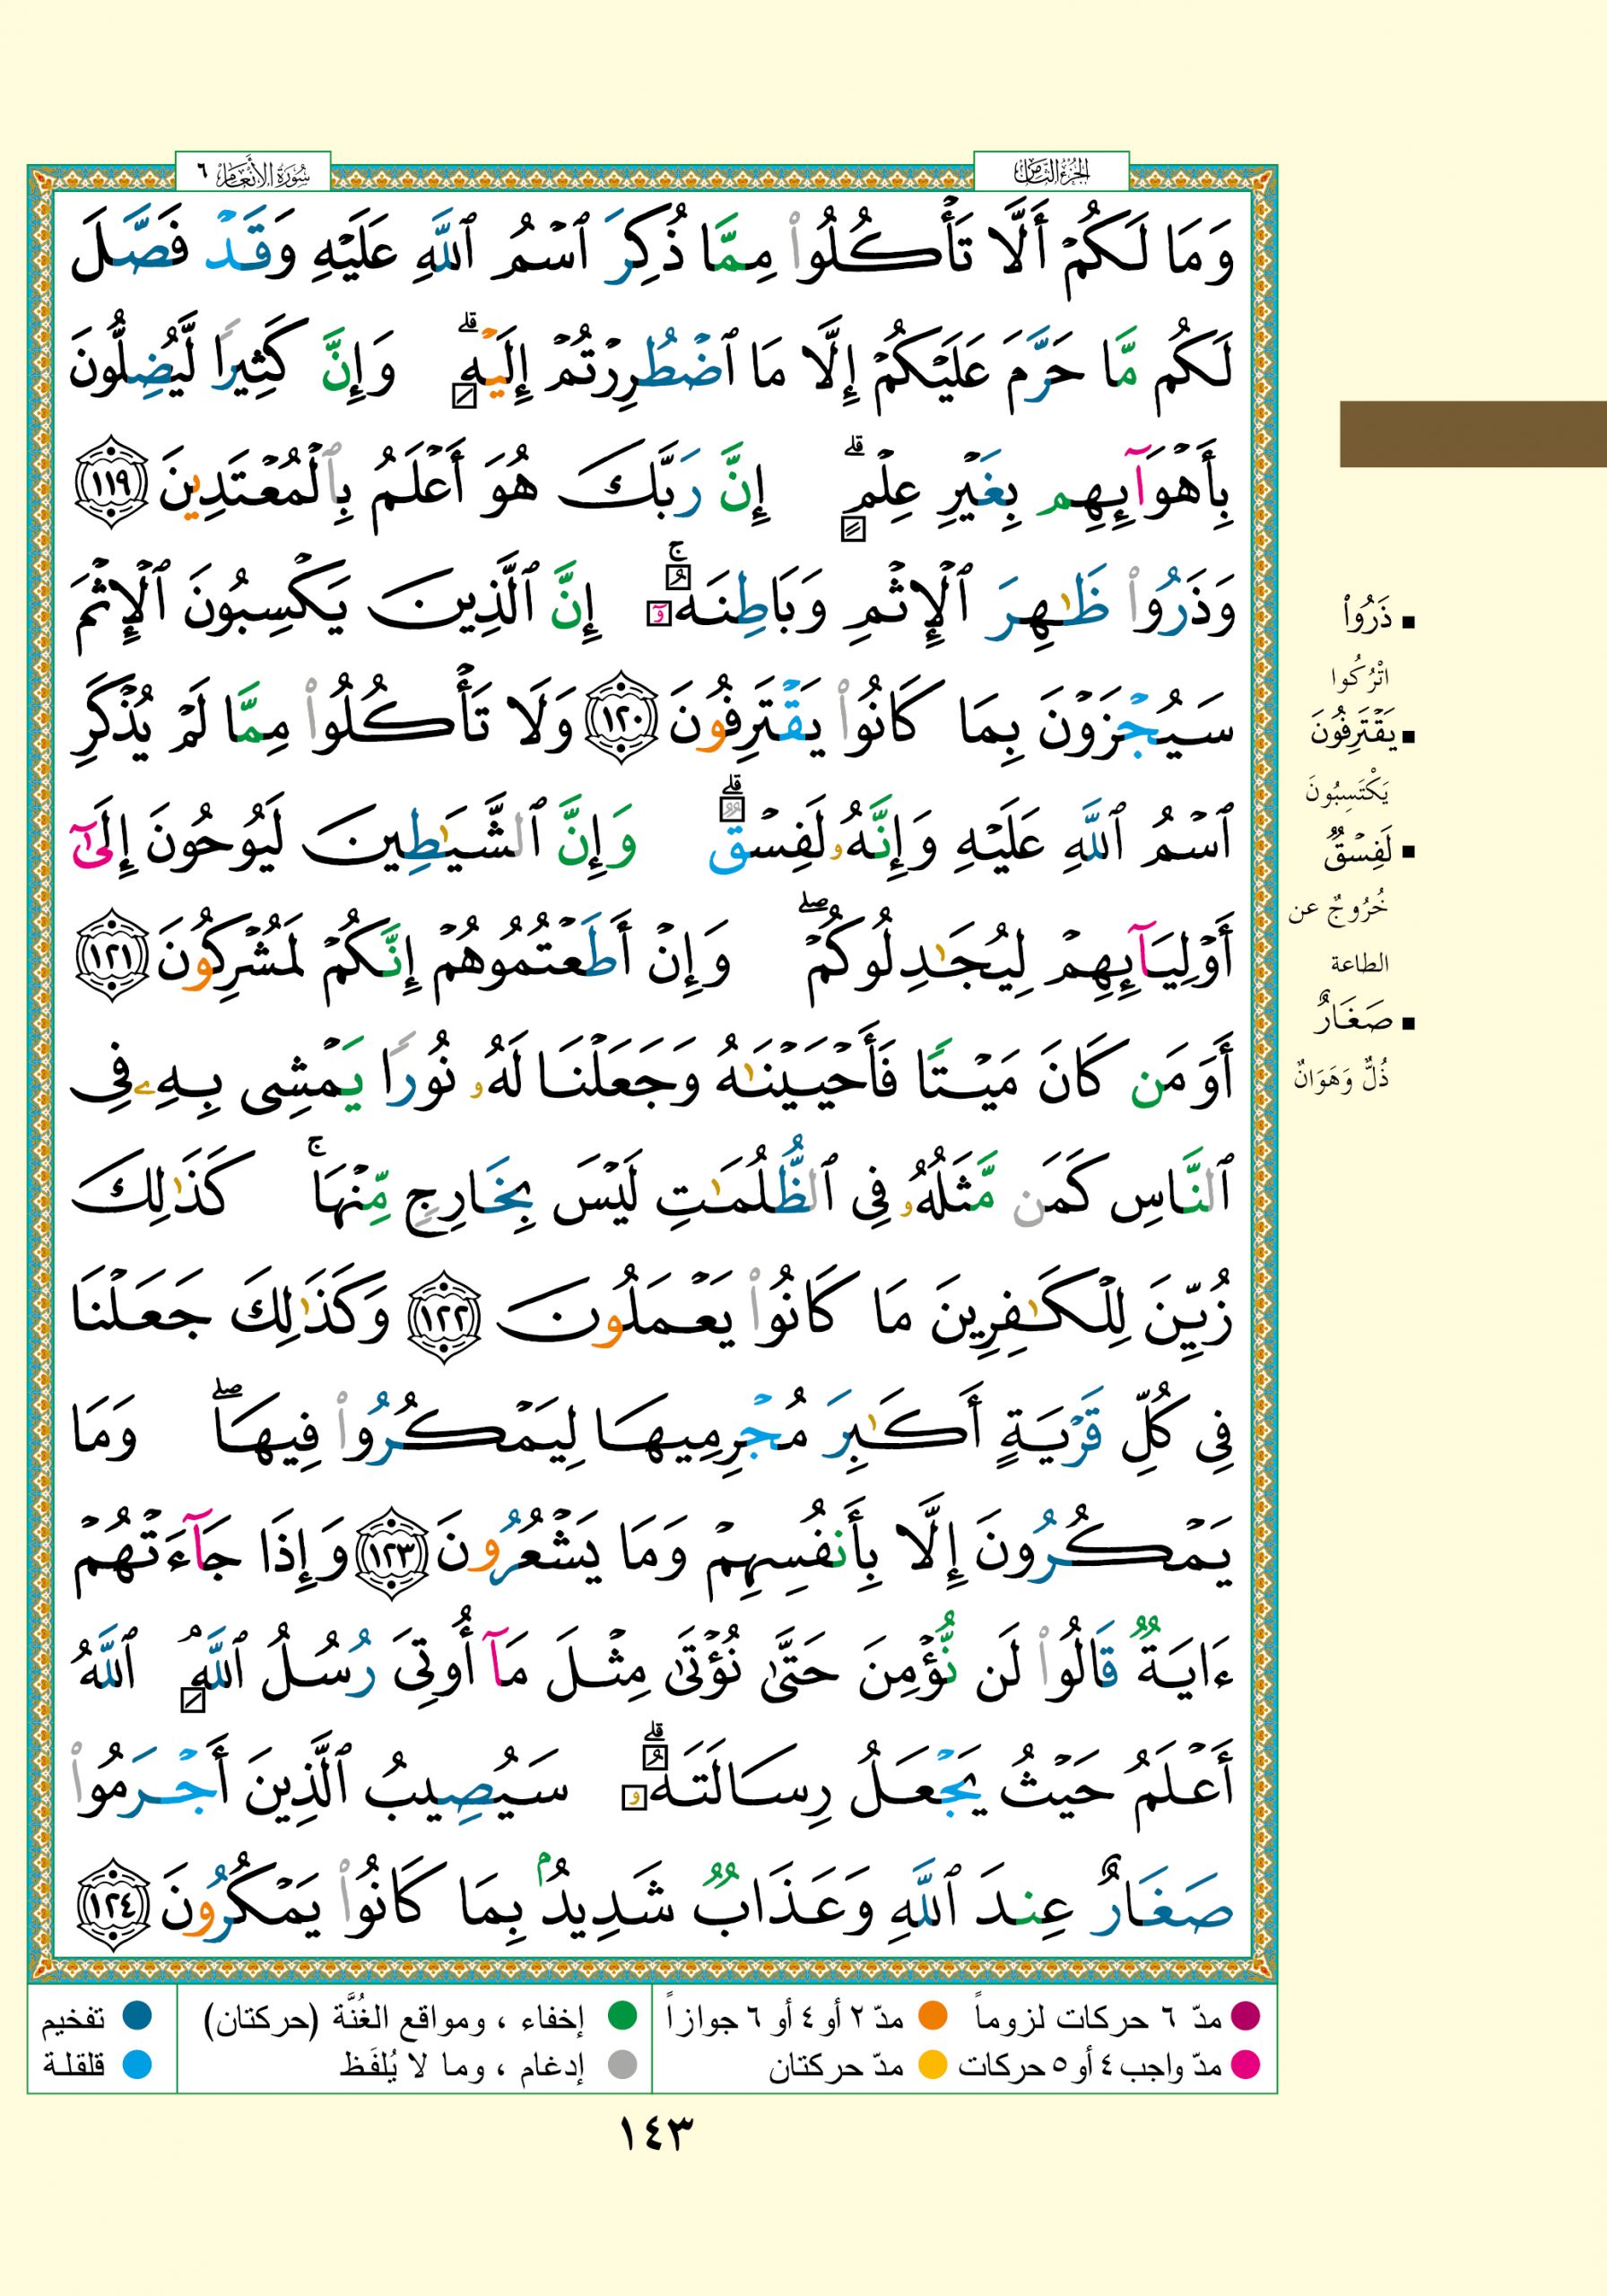 الجزء الثامن
سورة الأنعام ٦
وَمَا لَكُمْ أَلَّا تَأْكُلُوا۟ مِمَّا ذُكِرَ ٱسْمُ ٱللَّهِ عَلَيْهِ وَقَدْ فَصَّلَ
لَكُم مَّا حَرَّمَ عَلَيْكُمْ إِلَّا مَا ٱضْطُرِرْتُمْ إِلَيْهِ ۗ وَإِنَّ كَثِيرًا لَّيُضِلُّونَ
بِأَهْوَآئِهِم بِغَيْرِ عِلْمٍ ۗ إِنَّ رَبَّكَ هُوَ أَعْلَمُ بِٱلْمُعْتَدِينَ ١١٩
وَذَرُوا۟ ظَٰهِرَ ٱلْإِثْمِ وَبَاطِنَهُۥٓ ۚ إِنَّ ٱلَّذِينَ يَكْسِبُونَ ٱلْإِثْمَ
سَيُجْزَوْنَ بِمَا كَانُوا۟ يَقْتَرِفُونَ ١٢٠ وَلَا تَأْكُلُوا۟ مِمَّا لَمْ يُذْكَرِ
ٱسْمُ ٱللَّهِ عَلَيْهِ وَإِنَّهُۥ لَفِسْقٌ ۗ وَإِنَّ ٱلشَّيَٰطِينَ لَيُوحُونَ إِلَىٰٓ
أَوْلِيَآئِهِمْ لِيُجَٰدِلُوكُمْ ۖ وَإِنْ أَطَعْتُمُوهُمْ إِنَّكُمْ لَمُشْرِكُونَ ١٢١
أَوَمَن كَانَ مَيْتًا فَأَحْيَيْنَٰهُ وَجَعَلْنَا لَهُۥ نُورًا يَمْشِى بِهِۦ فِى
ٱلنَّاسِ كَمَن مَّثَلُهُۥ فِى ٱلظُّلُمَٰتِ لَيْسَ بِخَارِجٍ مِّنْهَا ۚ كَذَٰلِكَ
زُيِّنَ لِلْكَٰفِرِينَ مَا كَانُوا۟ يَعْمَلُونَ ١٢٢ وَكَذَٰلِكَ جَعَلْنَا
فِى كُلِّ قَرْيَةٍ أَكَٰبِرَ مُجْرِمِيهَا لِيَمْكُرُوا۟ فِيهَا ۖ وَمَا
يَمْكُرُونَ إِلَّا بِأَنفُسِهِمْ وَمَا يَشْعُرُونَ ١٢٣ وَإِذَا جَآءَتْهُمْ
ءَايَةٌ قَالُوا۟ لَن نُّؤْمِنَ حَتَّىٰ نُؤْتَىٰ مِثْلَ مَآ أُوتِىَ رُسُلُ ٱللَّهِ ۘ ٱللَّهُ
أَعْلَمُ حَيْثُ يَجْعَلُ رِسَالَتَهُۥ ۗ سَيُصِيبُ ٱلَّذِينَ أَجْرَمُوا۟
صَغَارٌ عِندَ ٱللَّهِ وَعَذَابٌ شَدِيدٌۢ بِمَا كَانُوا۟ يَمْكُرُونَ ١٢٤
▪ ذَرُوا۟
اتْرُكُوا
▪ يَقْتَرِفُونَ
يَكْتَسِبُونَ
▪ لَفِسْقٌ
خُرُوجٌ عن
الطاعة
▪ صَغَارٌ
ذُلٌّ وَهَوَانٌ
مدّ ٦ حركات لزوماً ● مدّ ٢ أو ٤ أو ٦ جوازاً ● إخفاء ، ومواقع الغُنَّة (حركتان) ● تفخيم
مدّ واجب ٤ أو ٥ حركات ● مدّ حركتان ● إدغام ، وما لا يُلفَظ ● قلقلة
١٤٣